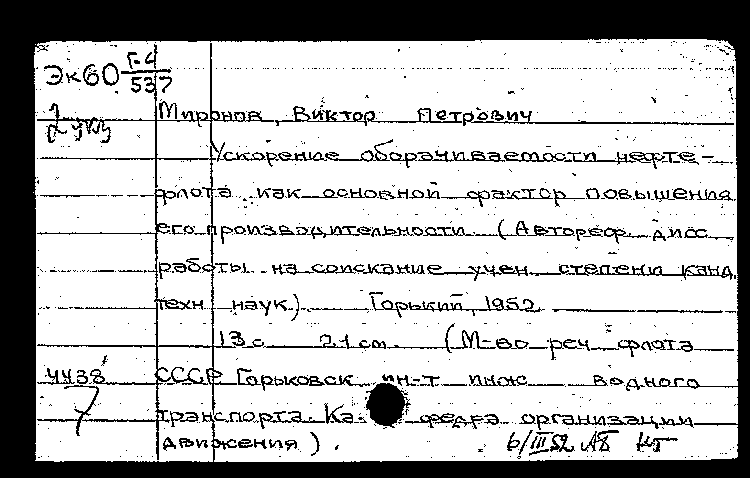 Эк60 Г-6
537
Миронов, Виктор Петрович
Ускорение оборачиваемости нефте-
флота как основной фактор повышения
его производительности. (Автореф. дисс.
работы на соискание учен. степени канд.
техн. наук). Горький, 1952
13 с. 21 см. (М-во реч. флота
4438
СССР Горьковск. ин-т инж. водного
транспорта. Кафедра организации
движения).
6/III52